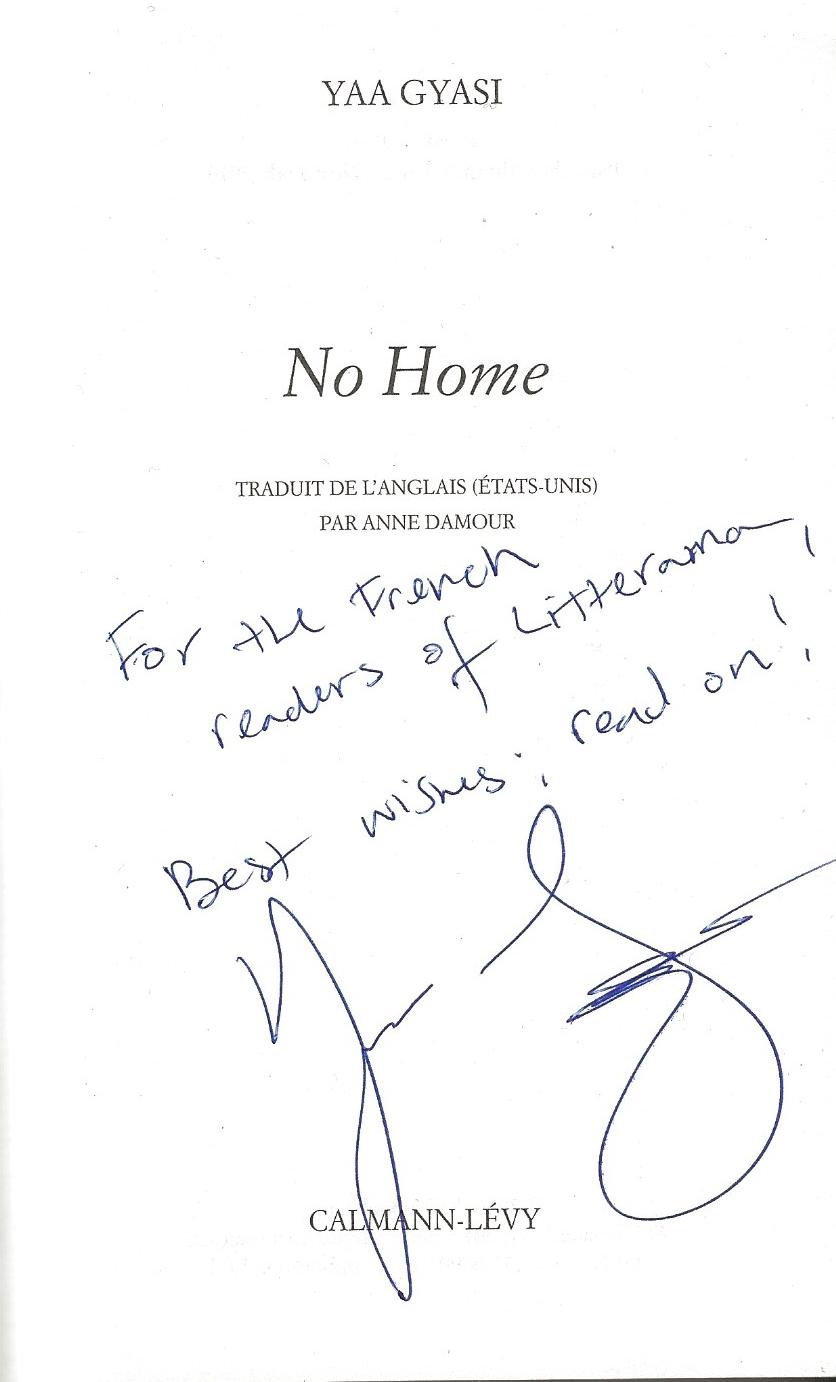 YAA GYASI
No Home
TRADUIT DE L'ANGLAIS (ÉTATS-UNIS)
PAR ANNE DAMOUR
For the French
readers of Litterama,
Best wishes, read on!
CALMANN-LÉVY